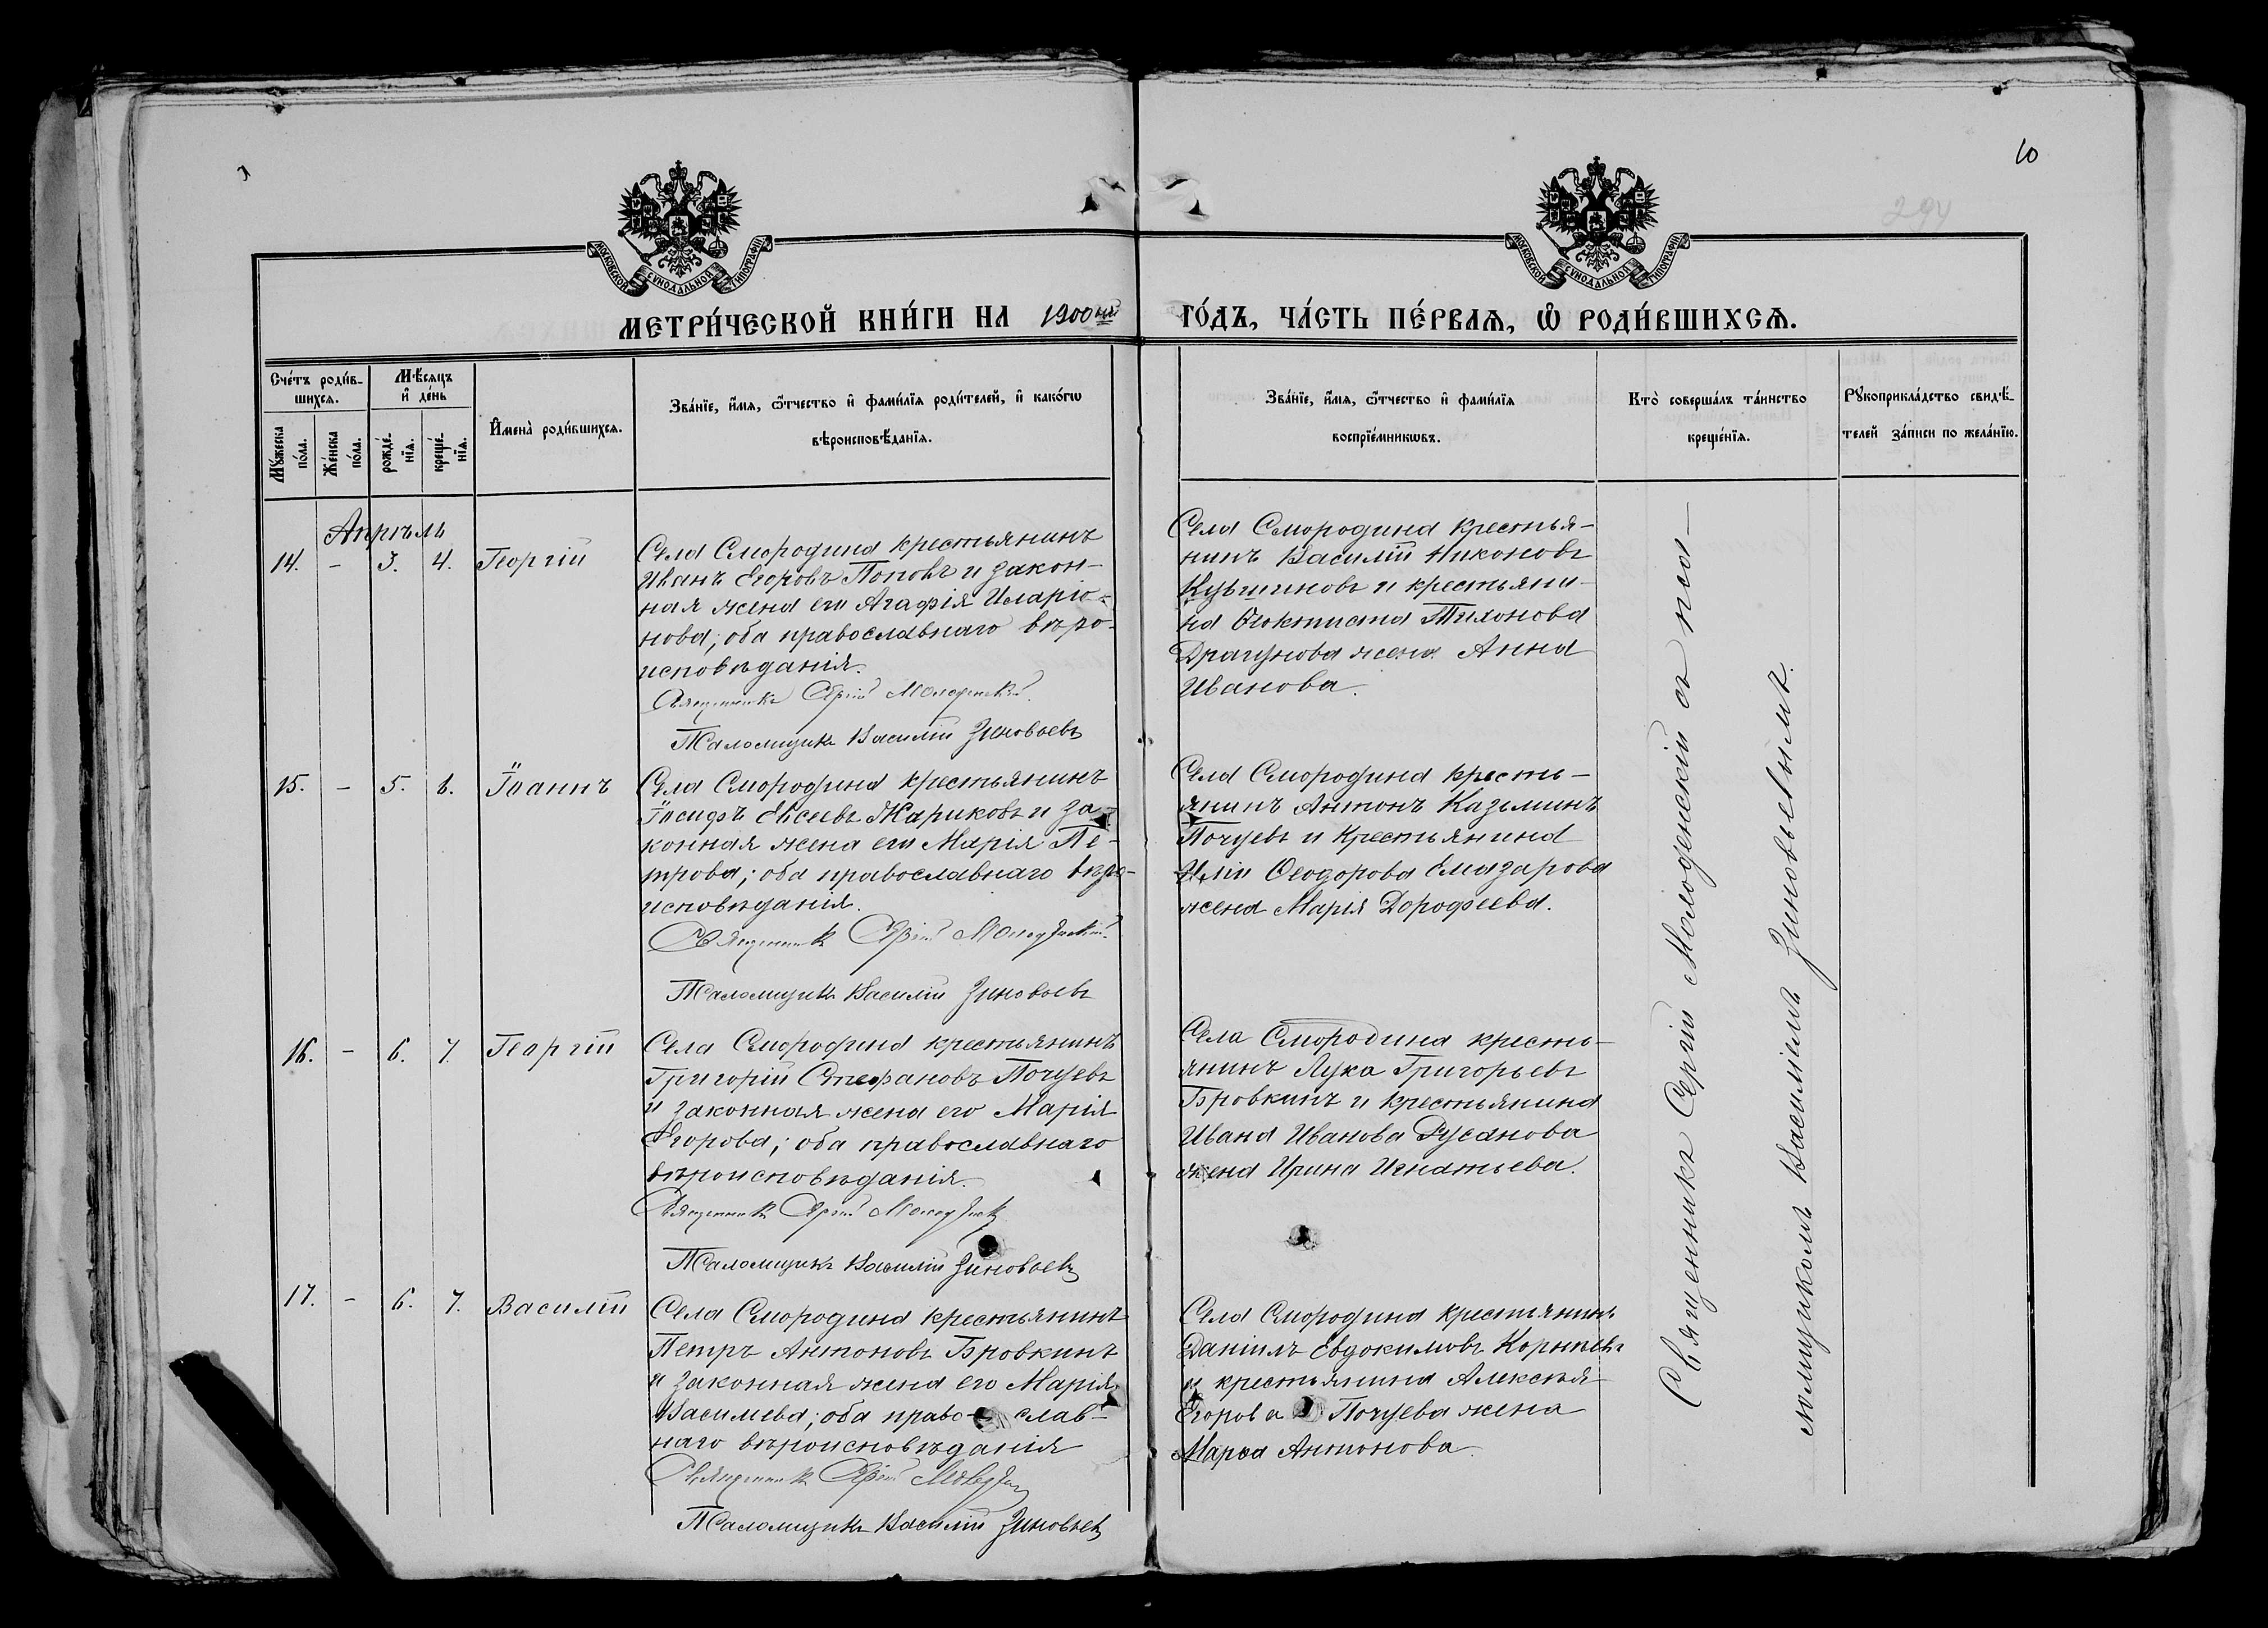 10
294
МОСКОВСКОЙ СУНОДАЛЬНОЙ ТИПОГРАФІИ
МОСКОВСКОЙ СУНОДАЛЬНОЙ ТИПОГРАФІИ
МЕТРИ́ЧЕСКОЙ КНИ́ГИ НА 1900ый ГО́ДЪ, ЧА́СТЬ ПЕ́РВАѦ, Ѽ РОДИ́ВШИХСѦ.
Сче́тъ роди́в-
шихсѧ.
Мꙋ́жеска
по́ла.
Же́нска
по́ла.
Мѣ́сѧцъ
и҆ де́нь
рожде́-
нїѧ.
креще́-
нїѧ.
И҆мена̀ роди́вшихсѧ.
Зва́нїе, и҆́мѧ, ѻ҆́тчество и҆ фами́лїѧ роди́телей, и҆ како́гѡ
вѣроисповѣ́данїѧ.
Зва́нїе, и҆́мѧ, ѻ҆́тчество и҆ фами́лїѧ
воспрїе́мникѡвъ.
Кто̀ соверша́лъ та́инство
креще́нїѧ.
Рꙋкоприкла́дство свидѣ́-
телей за́писи по жела́нїю.
Апрѣль
14. - 3. 4. Георгій
Села Смородина крестьянинъ
Иванъ Егоровъ Поповъ и закон-
ная жена его Агафія Иларіо-
нова; оба православнаго вѣро-
исповѣданія.
Священникъ Сергій Молодежскій
Псаломщикъ Василій Зиновьевъ
Села Смородина крестья-
нинъ Василій Никоновъ
и крестьяни-
на Ѳеоктиста Тихонова
Драгунова жена Анна
Иванова.
15. - 5. 6. Іоаннъ
Села Смородина крестьянинъ
Іосифъ Елисеевъ Жариковъ и за-
конная жена его Марія Пе-
трова; оба православнаго вѣро-
исповѣданія.
Священникъ Сергій Молодежскій
Псаломщикъ Василій Зиновьевъ
Села Смородина кресть-
янинъ Антонъ Казьминъ
Почуевъ и крестьянина
Иліи Ѳеодорова Елизарова
жена Марія Дорофеева.
16. - 6. 7. Георгій
Села Смородина крестьянинъ
Григорій Стефановъ Почуевъ
и законная жена его Марія
Егорова; оба православнаго
вѣроисповѣданія.
Священникъ Сергій Молодежск
Псаломщикъ Василій Зиновьевъ
Села Смородина кресть-
янинъ Лука Григорьевъ
Бровкинъ и крестьянина
Ивана Иванова Русанова
жена Ирина Игнатьева.
17. - 6. 7. Василій
Села Смородина крестьянинъ
Петръ Антоновъ Бровкинъ
и законная жена его Марія
Васильева; оба право- слав-
наго вѣроисповѣданія
Священникъ Сергій
Псаломщикъ Василій Зиновьевъ
Села Смородина крестьянинъ
Даніилъ Евдокимовъ
и крестьянина Алексѣя
Егорова Почуева жена
Марѳа Антонова.
Священникъ Сергій Молодежскій съ пса-
ломщикомъ Василіемъ Зиновьевымъ.